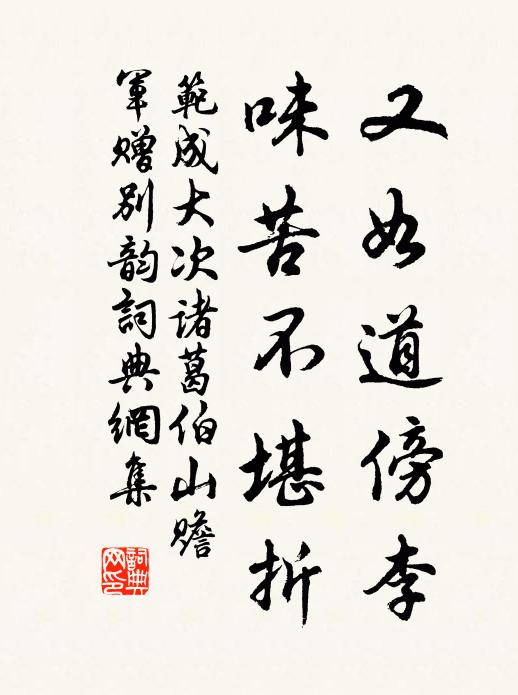 又如道傍李
味苦不堪折
範成大次諸葛伯山贍
軍贈別韵詞典網集
詞典網印